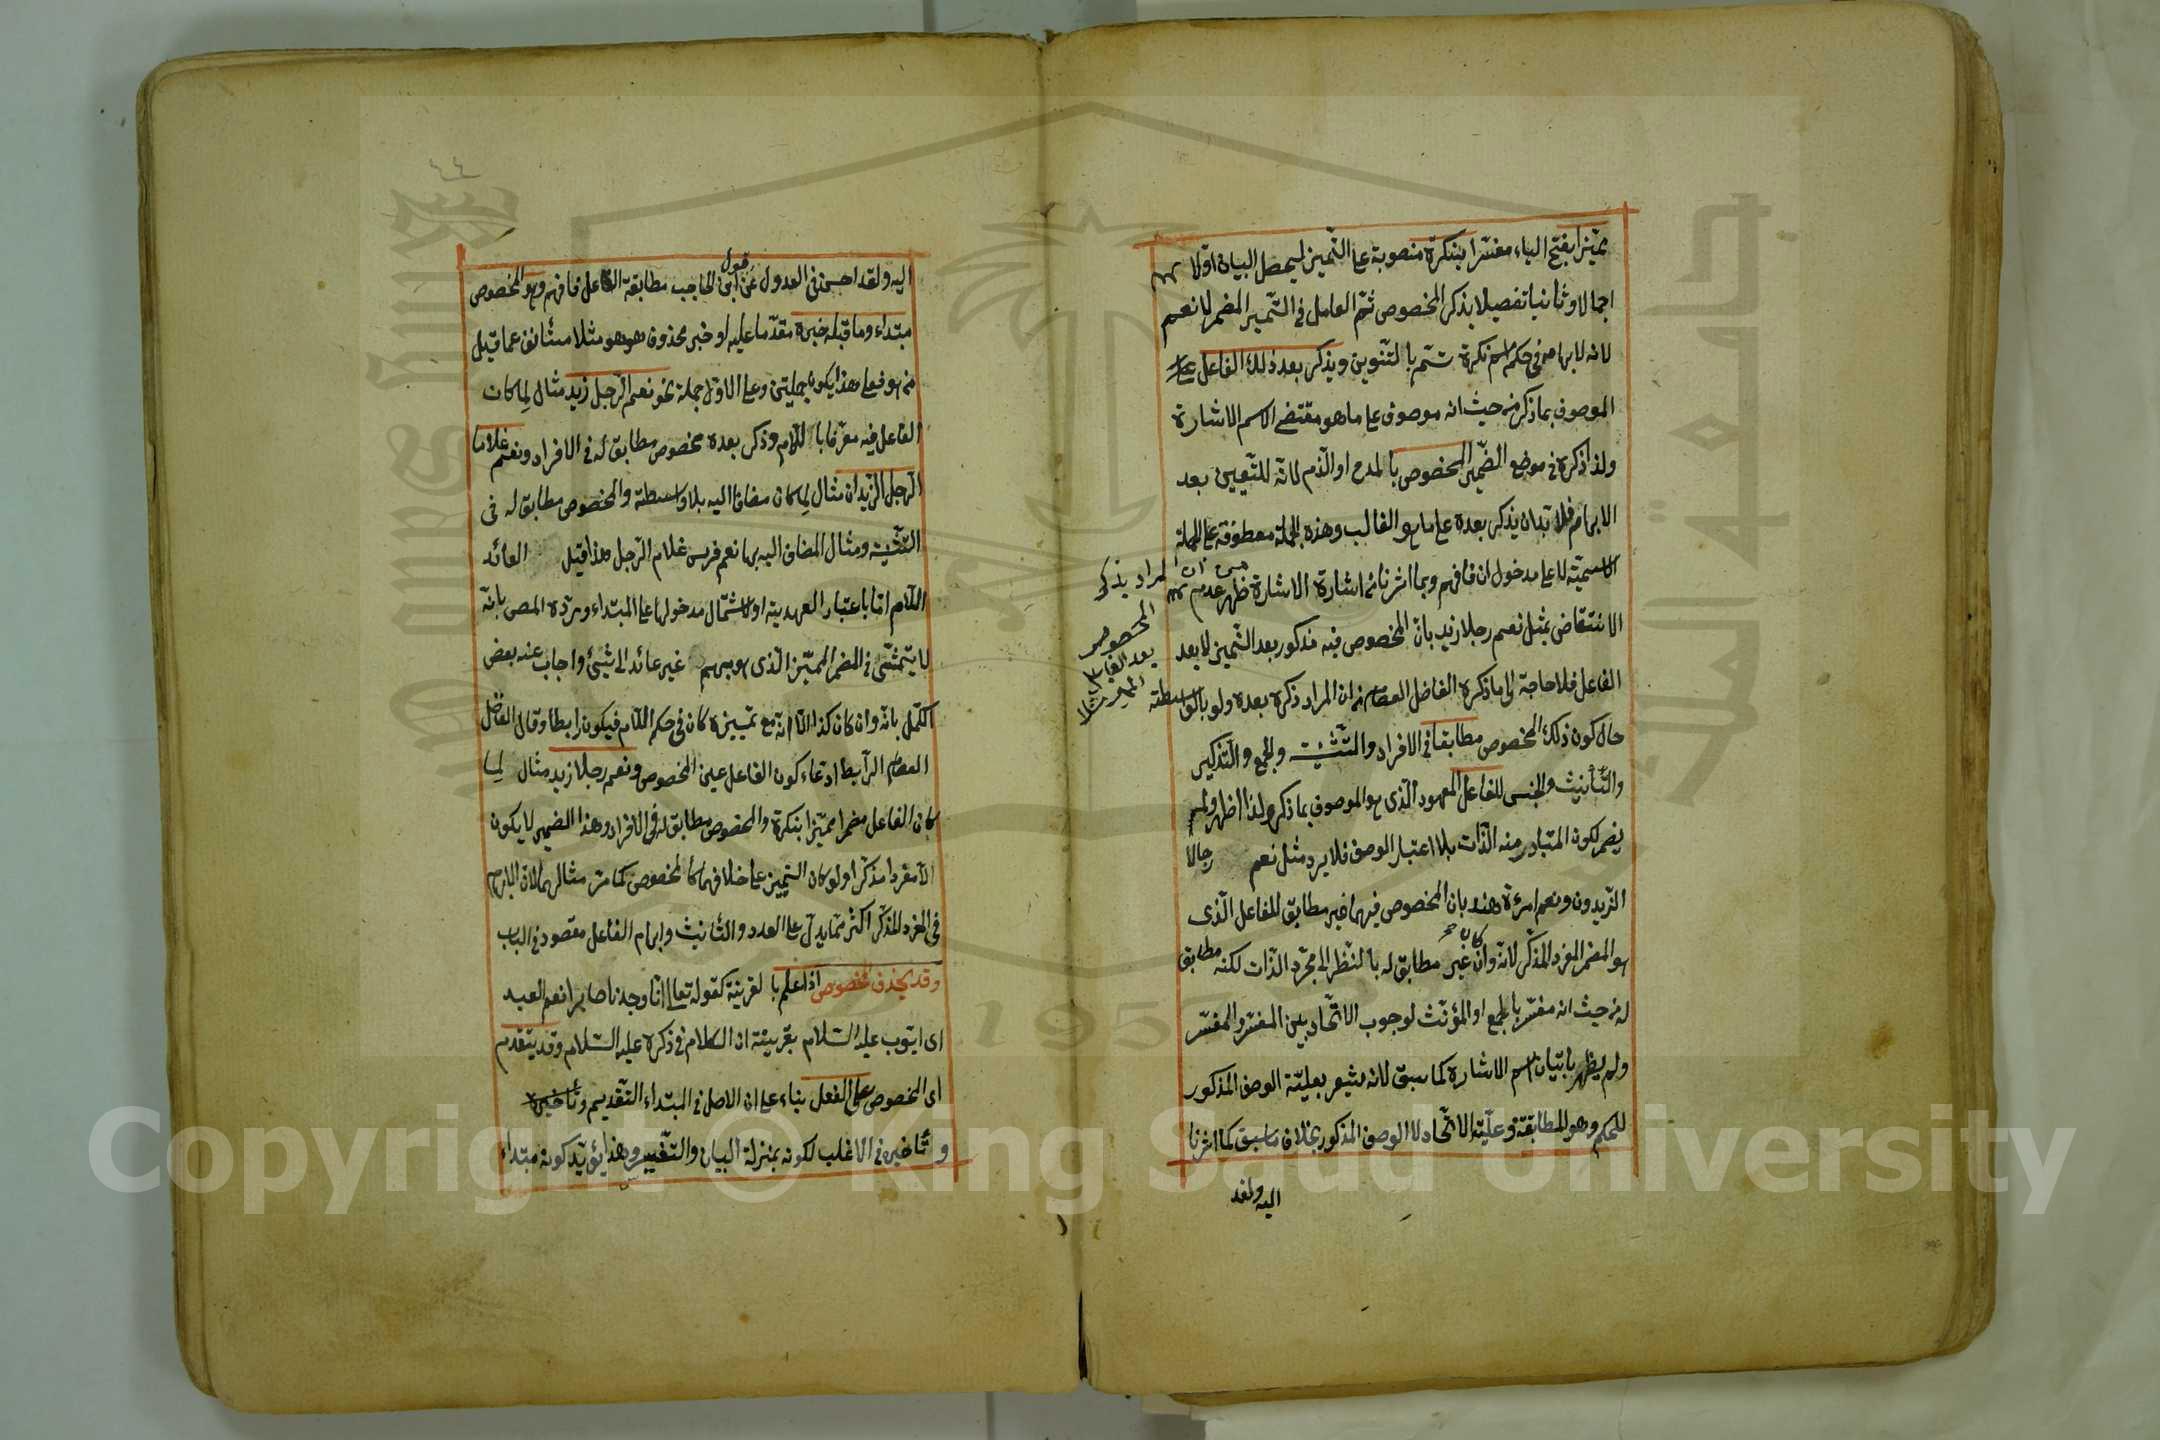 مميّزا بفتح الياء مفسّرا بنكرة منصوبة على التّميز ليحصل البيان اوّلا
اجمالا وثانيا تفصيلا بذكر المخصوص ثمّ العامل فى التّميز المضمر لا نعم
لانه لابهامه فى حكم اسم نكرة تتم بالتّنوين ويذكر بعد ذلك الفاعل
الموصوف بما ذكر من حيث انه موصوف على ما هو مقتضى الاسم الاشارة
ولذا ذكره فى موضع الضّمير المخصوص بالمدح او الذّم لانّه للتّعيين بعد
الابهام فلا بدّ ان يذكر بعده على ما هو الغالب وهذه الجملة معطوفة على الجملة
الاسميّة لا على مدخول ان فافهم وبما اشرنا فى اشارة الاشارة ظهر عدم
الانتقاض بمثل نعم رجلا زيد بانّ المخصوص فيه مذكور بعد التّميز لا بعد
الفاعل فلا حاجة الى ما ذكره الفاضل العصام من ان المراد ذكره بعده ولو بالواسطة
حال كون ذلك المخصوص مطابقا فى الافراد والتّثنية والجمع والتّذكير
والتّأنيث والجنس للفاعل المعهود الّذى هو الموصوف بما ذكر ولذا اظهر ولم
يضمر لكون المتبادر منه الّذات بلا اعتبار الوصف فلا يرد مثل نعم رجالا
الزّيدون ونعم امرءة هند بان المخصوص فيهما غير مطابق للفاعل الّذى
هو المضمر المفرد المذكّر لانّه وان كان غير مطابق له بالنّظر الى مجرّد الذّات لكنه مطابق
له من حيث انه مفسّر بالجمع او المؤنّث لوجوب الاتّحاد بين المفسّر والمفسّر
ولم يظهر باتيان اسم الاشارة كما سبق لانه يشعر بعليّة الوصف المذكور
للحكم وهو المطابقة وعلّيّة الاتّحاد لا الوصف المذكور بخلاف ما سبق كما اشرنا
اليه ولقد
من ان المراد يذكر
المخصوص
بعد الفاعل
اليه ولقد احسن فى العدول عن قول ابن الحاجب مطابقة الفاعل فافهم وهو المخصوص
مبتداء وما قبله خبره مقدّما عليه او خبر محذوف هو هو مثلا مستأنف عما قيل
من هو فعلى هذا يكون جملتين وعلى الاوّل جملة نحو نعم الرّجل زيد مثال لما كان
الفاعل فيه معرّفا باللّام وذكر بعده مخصوص مطابق له فى الافراد ونعم غلاما
الرّجل الزّيدان مثال لما كان مضافا اليه بلا واسطة والمخصوص مطابق له فى
التّثنية ومثال المضاف اليه بها نعم فرس غلام الرّجل هذا قيل العائد
اللّام امّا باعتبار العهدية او لاشتمال مدخولها على المبتداء وردّه المص بانّه
لا يتمشّى فى المضمر المميّز الّذى هو مبهم غير عائد الى شيئ واجاب عنه بعض
الكمّل بانّه وان كان كذا الّا انّه مع تمييزه كان فى حكم اللّام فيكون رابطا وقال الفاضل
العصام الرّابط ادّعاء كون الفاعل عين المخصوص ونعم رجلا زيد مثال لما
كان الفاعل مضمرا مميّزا بنكرة والمخصوص مطابق له فى الافراد وهذا الضمير لا يكون
الّا مفردا مذكّرا ولو كان التميز على خلافهما كالمخصوص كما مرّ مثالهما لان الابهام
فى المفرد المذكّر اكثر ممّا يدلّ على العدد والتّأنيث وابهام الفاعل مقصود فى الباب
وقد يحذف المخصوص اذا علم بالقرينة كقوله تعالى انّا وجدناه صابرا نعم العبد
اى ايّوب عليه السّلام بقرينة ان الكلام فى ذكره عليه السّلام وقد يتقدم
اى المخصوص على الفعل بناء على ان الاصل فى المبتداء التّقديم وتأخيره
وتأخيره فى الاغلب لكونه بمنزلة البيان والتّفسير وهذا يؤيّد كونه مبتداء
٤٤
Copyright © King Saud University
1957